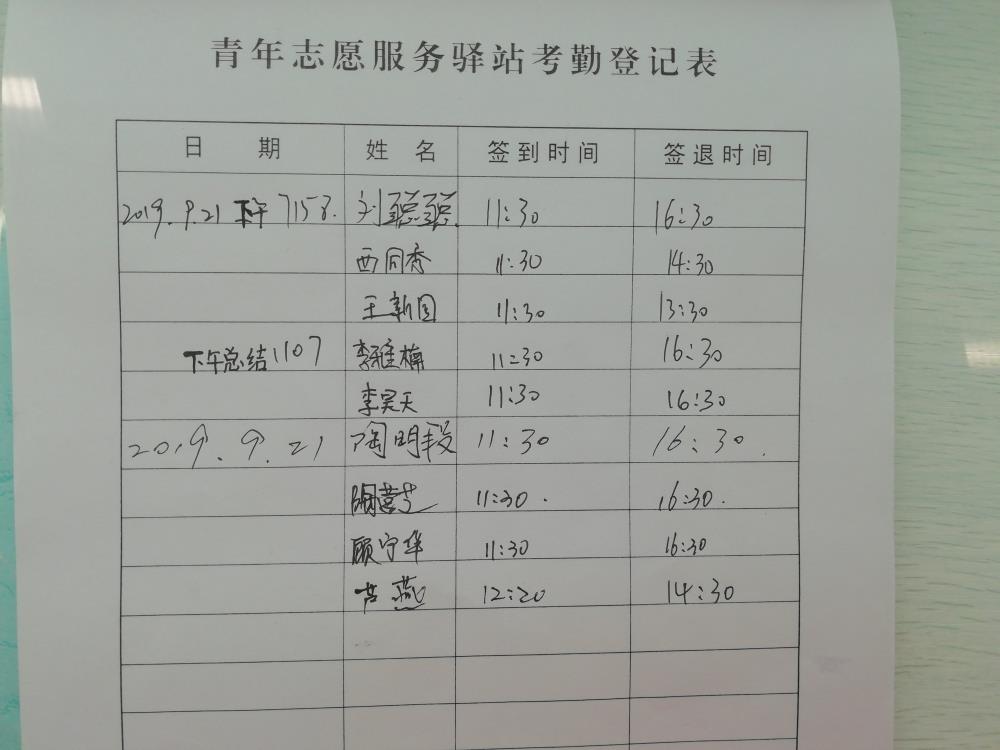 青年志愿服务驿站考勤登记表
日 期 姓 名 签到时间 签退时间
2019.9.21 下午 7158. 刘聪聪. 11:30 16:30
西同秀 11:30 14:30
王新国 11:30 13:30
下午总结1107 李雅楠 11:30 16:30
李昊天 11:30 16:30
2019.9.21 陶明段 11:30 16:30.
11:30. 16:30.
顾宁华 11:30 16:30
芦燕 12:20 14:30